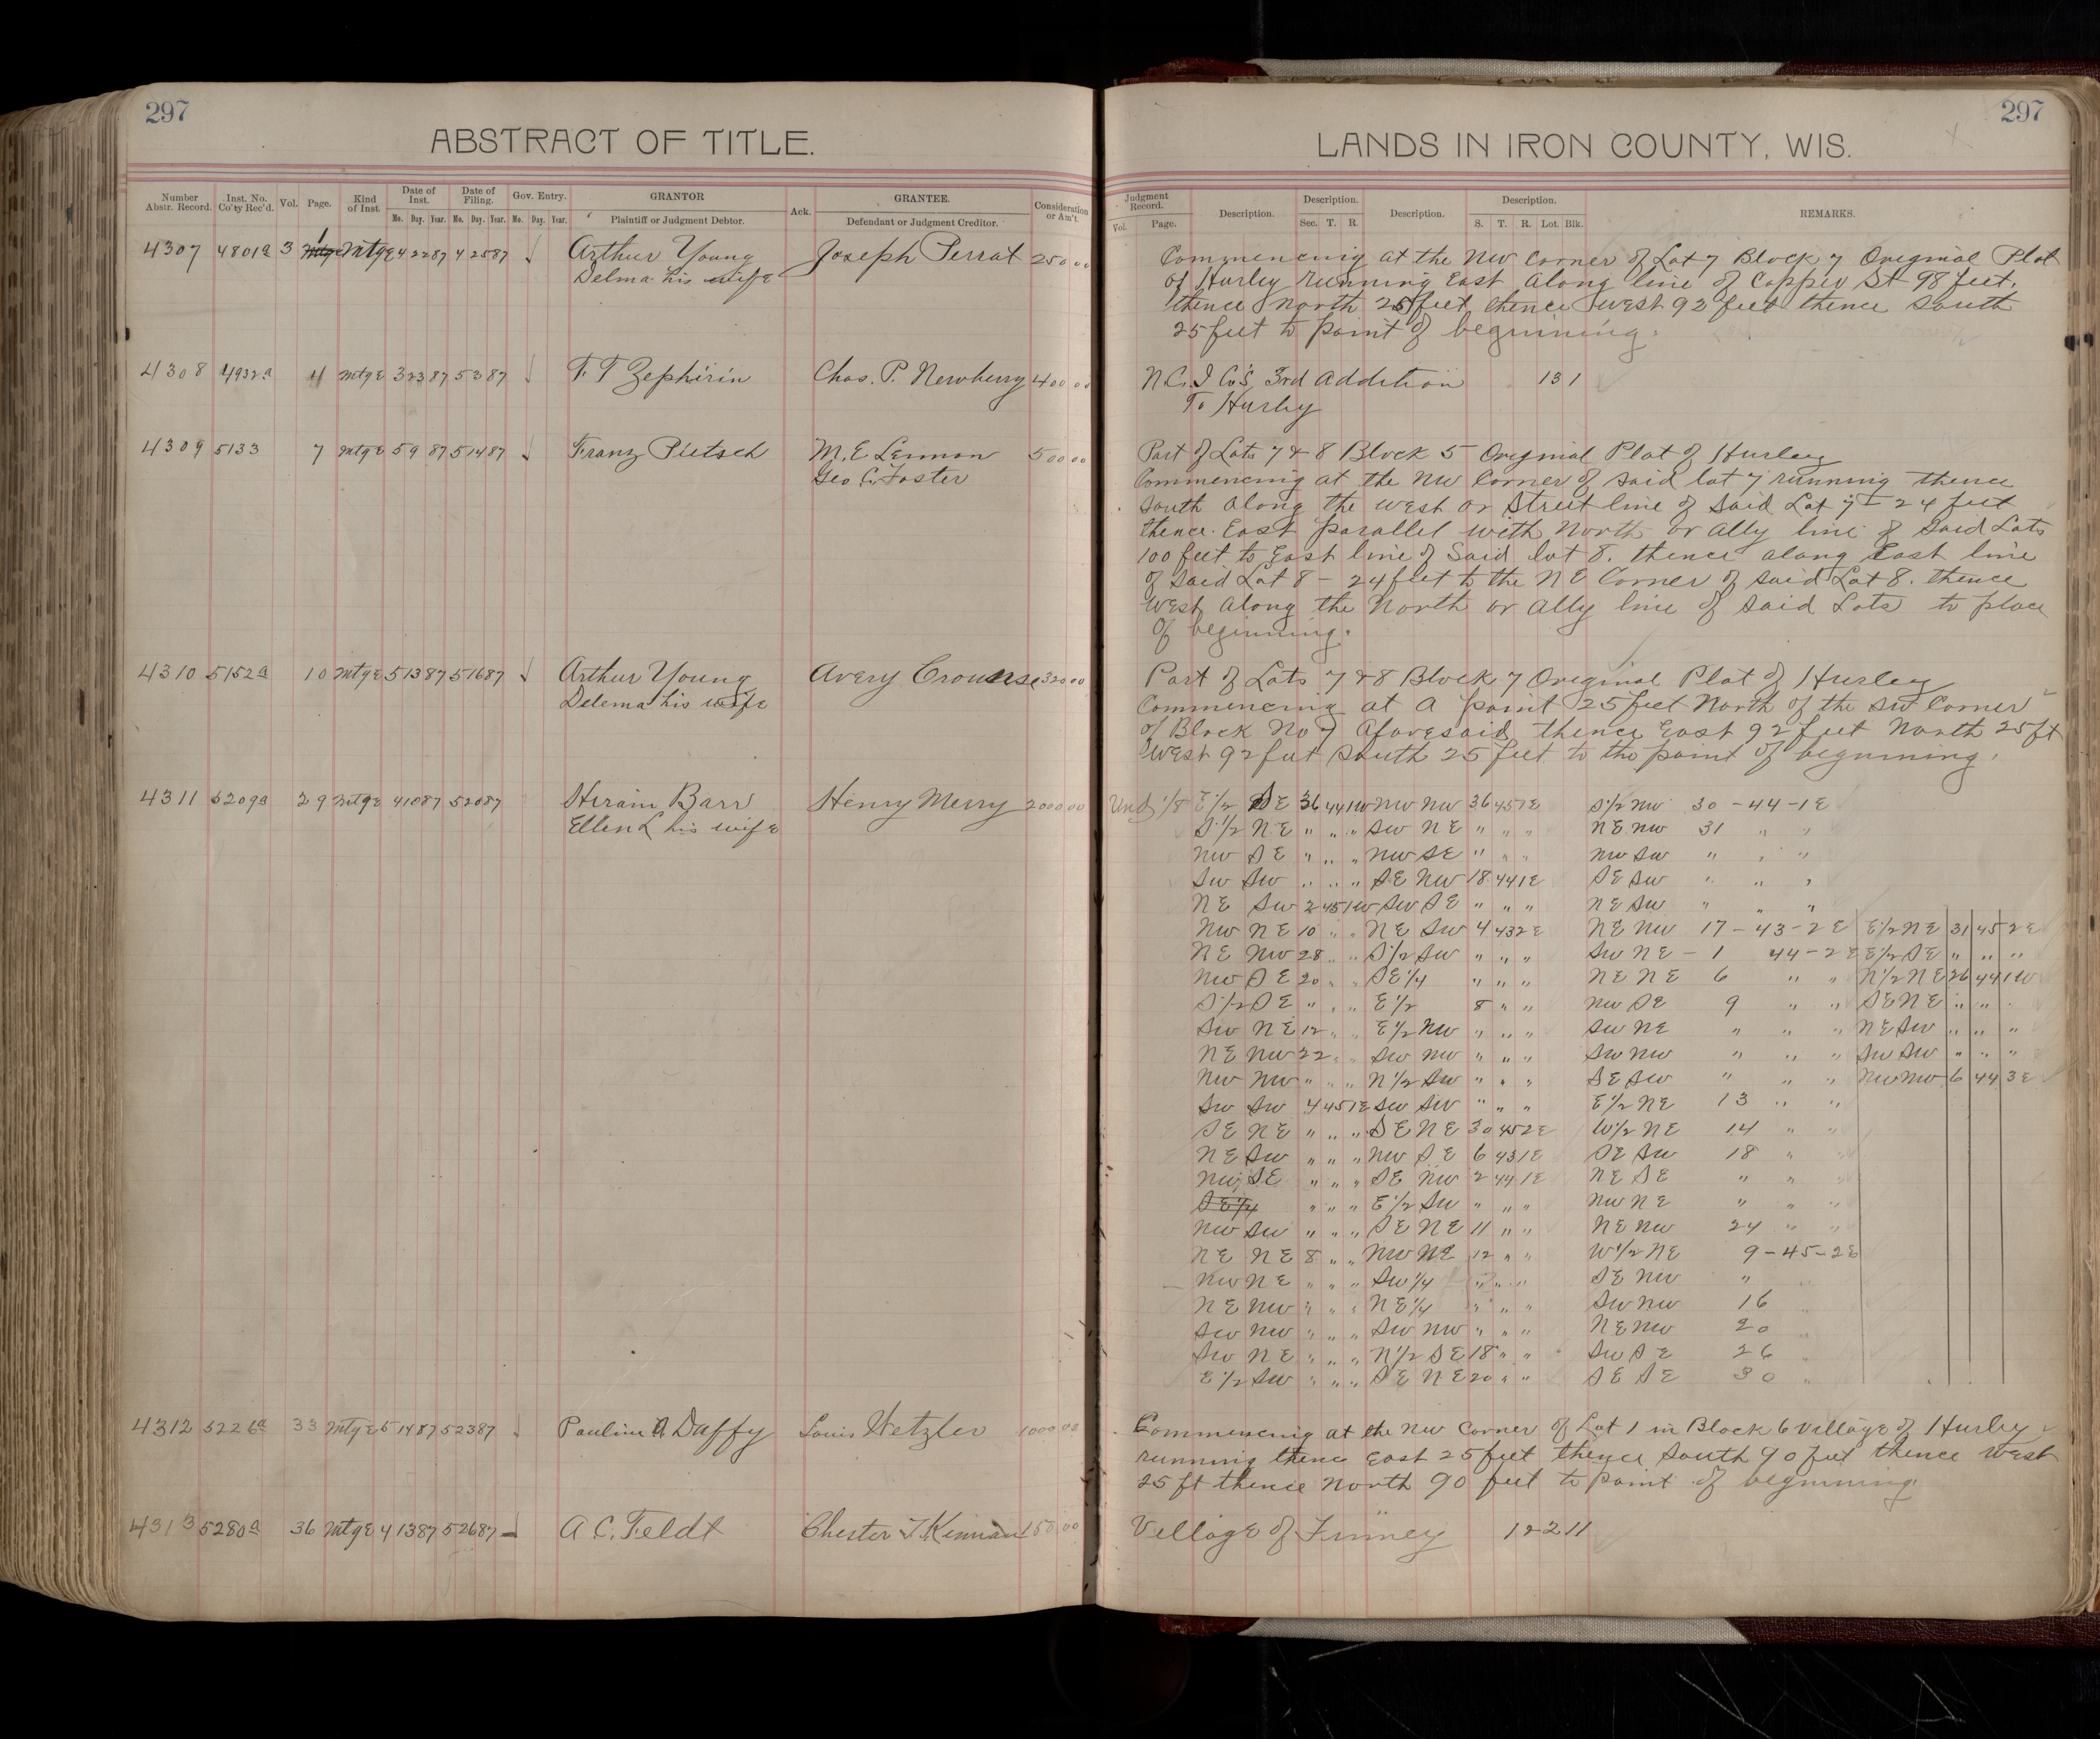 297
ABSTRACT OF TITLE.
Number Abstr. Record. Inst. No. Co'ty Rec'd. Vol. Page. Kind of Inst. Date of Inst. Mo. Day. Year. Date of Filing. Mo. Day. Year. Gov. Entry. Mo. Day. Year. GRANTOR Plaintiff or Judgment Debtor. Ack. GRANTEE. Defendant or Judgment Creditor. Consideration or Am't.
4307 4801a 3 1 MtgE 4 22 87 4 25 87 Arthur Young Joseph Perrat 250 00
Delma his wife
4308 4932a 4 MtgE 3 23 87 5 3 87 F. T Zephirin Chas. P. Newberry 400 00
4309 5133 7 MtgE 5 9 87 5 14 87 Franz Pietsch M. E Lennon 500 00
Geo C. Foster
4310 5152a 10 MtgE 5 13 87 5 16 87 Arthur Young Avery Crounse 320 00
Delema his wife
4311 5209a 29 MtgE 4 10 87 5 20 87 Hiram Barr Henry Merry 2000 00
Ellen L his wife
4312 5226a 33 MtgE 5 14 87 5 23 87 Pauline A Daffy Louis Hetzler 1000 00
4313 5280a 36 MtgE 4 13 87 5 26 87 A C. Feldt Chester T. Kinnan 150 00
297
LANDS IN IRON COUNTY, WIS.
Judgment Record. Vol. Page. Description. Description. Sec. T. R. Description. Description. S. T. R. Lot. Blk. REMARKS.
Commencing at the NW Corner of Lot 7 Block 7 Original Plat
of Hurley running East along line of Copper St 98 feet.
thence North 25 feet thence west 92 feet thence South
25 feet to point of beginning.
N. C. I Co's 3rd Addition 13 1
To Hurley
Part of Lots 7 & 8 Block 5 Original Plat of Hurley
Commencing at the NW Corner of said lot 7 running thence
South along the west or Street line of Said Lot 7 - 24 feet
thence East parallel with North or Ally line of Said Lots
100 feet to East line of Said lot 8. thence along East line
of said Lot 8 - 24 feet to the NE Corner of said Lot 8. thence
West along the North or Ally line of said Lots to place
of beginning.
Part of Lots 7 & 8 Block 7 Original Plat of Hurley
Commencing at a point 25 feet North of the SW Corner
of Block No 7 Aforesaid thence East 92 feet North 25 ft
West 92 feet South 25 feet to the point of beginning.
Und 1/8 E 1/2 SE 36 44 1W NW NW 36 45 1E S 1/2 NW 30 - 44 - 1E
S 1/2 NE " " " SW NE " " " NE NW 31 " "
NW SE " " " NW SE " " " NW SW " " "
SW SW " " " SE NW 18 44 1E SE SW " " "
NE SW 2 45 1W SW SE " " " NE SW " " "
NW NE 10 " " NE SW 4 43 2E NE NW 17 - 43 - 2E E 1/2 NE 31 45 2E
NE NW 28 " " S 1/2 SW " " " SW NE - 1 44 - 2E E 1/2 SE " " "
NW SE 20 " " SE 1/4 " " " NE NE 6 " " N 1/2 NE 26 44 1W
S 1/2 SE " " " E 1/2 8 " " NW SE 9 " " SE NE " " "
SW NE 12 " " E 1/2 NW " " " SW NE " " " NE SW " " "
NE NW 22 " " SW NW " " " SW NW " " " SW SW " " "
NW NW " " " N 1/2 SW " " " SE SW " " " NW NW 6 44 3E
SW SW 4 45 1E SW SW " " " E 1/2 NE 13 " "
SE NE " " " SE NE 30 45 2E W 1/2 NE 14 " "
NE SW " " " NW SE 6 43 1E SE SW 18 " "
NW SE " " " SE NW 2 44 1E NE SE " " "
SE 1/4 " " " E 1/2 SW " " " NW NE " " "
NW SW " " " SE NE 11 " " NE NW 24 " "
NE NE 8 " " NW NE 12 " " W 1/2 NE 9 - 45 - 2E
NW NE " " " SW 1/4 " " " SE NW "
NE NW " " " NE 1/4 " " " SW NW 16 "
SW NW " " " SW NW " " " NE NW 20 "
SW NE " " " N 1/2 SE 18 " " SW SE 26 "
E 1/2 SW " " " SE NE 20 " " SE SE 30 "
Commencing at the NW Corner of Lot 1 in Block 6 Village of Hurley
running thence East 25 feet thence South 90 feet thence West
25 ft thence North 90 feet to point of beginning
Village of Finney 1 & 2 11